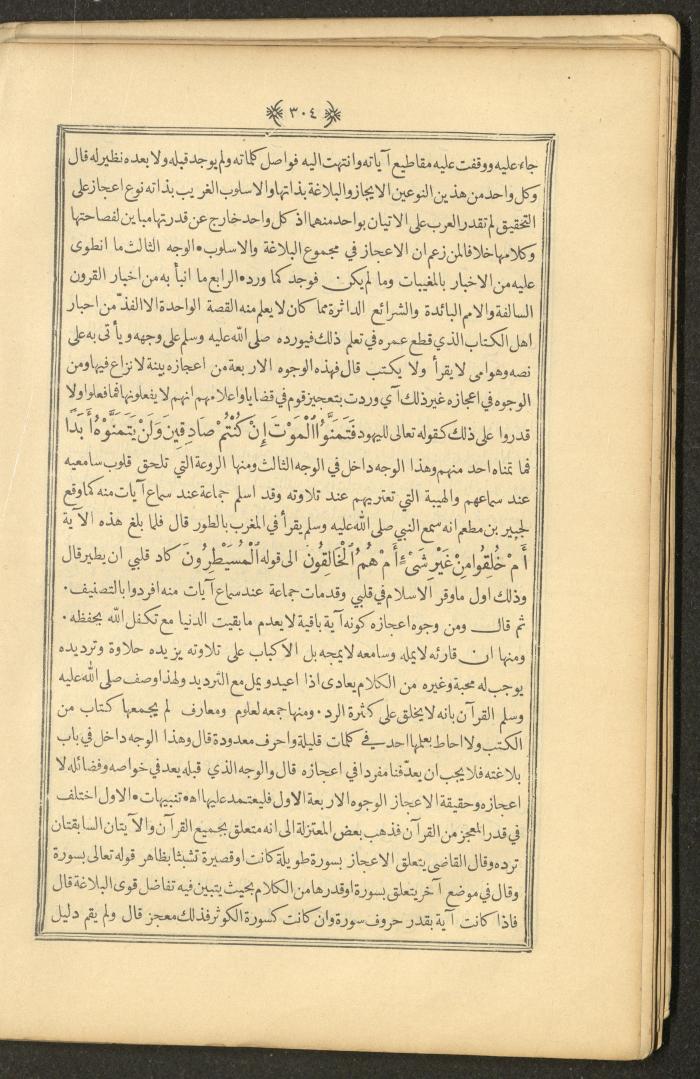 ﴿ ٣٠٤ ﴾
جاء عليه ووقفت عليه مقاطيع آياته وانتهت اليه فواصل كلماته ولم يوجد قبله ولا بعده نظير له قال
وكل واحد من هذين النوعين الايجاز والبلاغة بذاتها والاسلوب الغريب بذاته نوع اعجاز على
التحقيق لم تقدر العرب على الاتيان بواحد منهما اذ كل واحد خارج عن قدرتها مباين لفصاحتها
وكلامها خلافا لمن زعم ان الاعجاز في مجموع البلاغة والاسلوب • الوجه الثالث ما انطوى
عليه من الاخبار بالمغيبات وما لم يكن فوجد كما ورد • الرابع ما انبأ به من اخبار القرون
السالفة والامم البائدة والشرائع الداثرة مما كان لا يعلم منه القصة الواحدة الا الفذ من احبار
اهل الكتاب الذي قطع عمره في تعلم ذلك فيورده صلى الله عليه وسلم على وجهه ويأتى به على
نصه وهو امى لا يقرأ ولا يكتب قال فهذه الوجوه الاربعة من اعجازه بينة لا نزاع فيها ومن
الوجوه في اعجازه غير ذلك آي وردت بتعجيز قوم في قضايا واعلامهم انهم لا يفعلونها فما فعلوا ولا
قدروا على ذلك كقوله تعالى لليهود فَتَمَنَّوُا ٱلْمَوْتَ إِنْ كُنْتُمْ صَادِقِينَ وَلَنْ يَتَمَنَّوْهُ أَبَدًا
فما تمناه احد منهم وهذا الوجه داخل في الوجه الثالث ومنها الروعة التي تلحق قلوب سامعيه
عند سماعهم والهيبة التي تعتريهم عند تلاوته وقد اسلم جماعة عند سماع آيات منه كما وقع
لجبير بن مطعم انه سمع النبي صلى الله عليه وسلم يقرأ في المغرب بالطور قال فلما بلغ هذه الآية
أَمْ خُلِقُوا مِنْ غَيْرِ شَيْءٍ أَمْ هُمُ ٱلْخَالِقُون الى قوله ٱلْمُسَيْطِرُونَ كاد قلبي ان يطير قال
وذلك اول ما وقر الاسلام في قلبي وقد مات جماعة عند سماع آيات منه افردوا بالتصنيف •
ثم قال ومن وجوه اعجازه كونه آية باقية لا يعدم ما بقيت الدنيا مع تكفل الله بحفظه •
ومنها ان قارئه لا يمله وسامعه لا يمجه بل الاكباب على تلاوته يزيده حلاوة وترديده
يوجب له محبة وغيره من الكلام يعادى اذا اعيد ويمل مع الترديد ولهذا وصف صلى الله عليه
وسلم القرآن بانه لا يخلق على كثرة الرد • ومنها جمعه لعلوم ومعارف لم يجمعها كتاب من
الكتب ولا احاط بعلمها احد في كلمات قليلة واحرف معدودة قال وهذا الوجه داخل في باب
بلاغته فلا يجب ان يعد فنا مفردا في اعجازه قال والوجه الذي قبله يعد في خواصه وفضائله لا
اعجازه وحقيقة الاعجاز الوجوه الاربعة الاول فليعتمد عليها اه • تنبيهات • الاول اختلف
في قدر المعجز من القرآن فذهب بعض المعتزلة الى انه متعلق بجميع القرآن والآيتان السابقتان
ترده وقال القاضى يتعلق الاعجاز بسورة طويلة كانت او قصيرة تشبثا بظاهر قوله تعالى بسورة
وقال في موضع آخر يتعلق بسورة او قدرها من الكلام بحيث يتبين فيه تفاضل قوى البلاغة قال
فاذا كانت آية بقدر حروف سورة وان كانت كسورة الكوثر فذلك معجز قال ولم يقم دليل